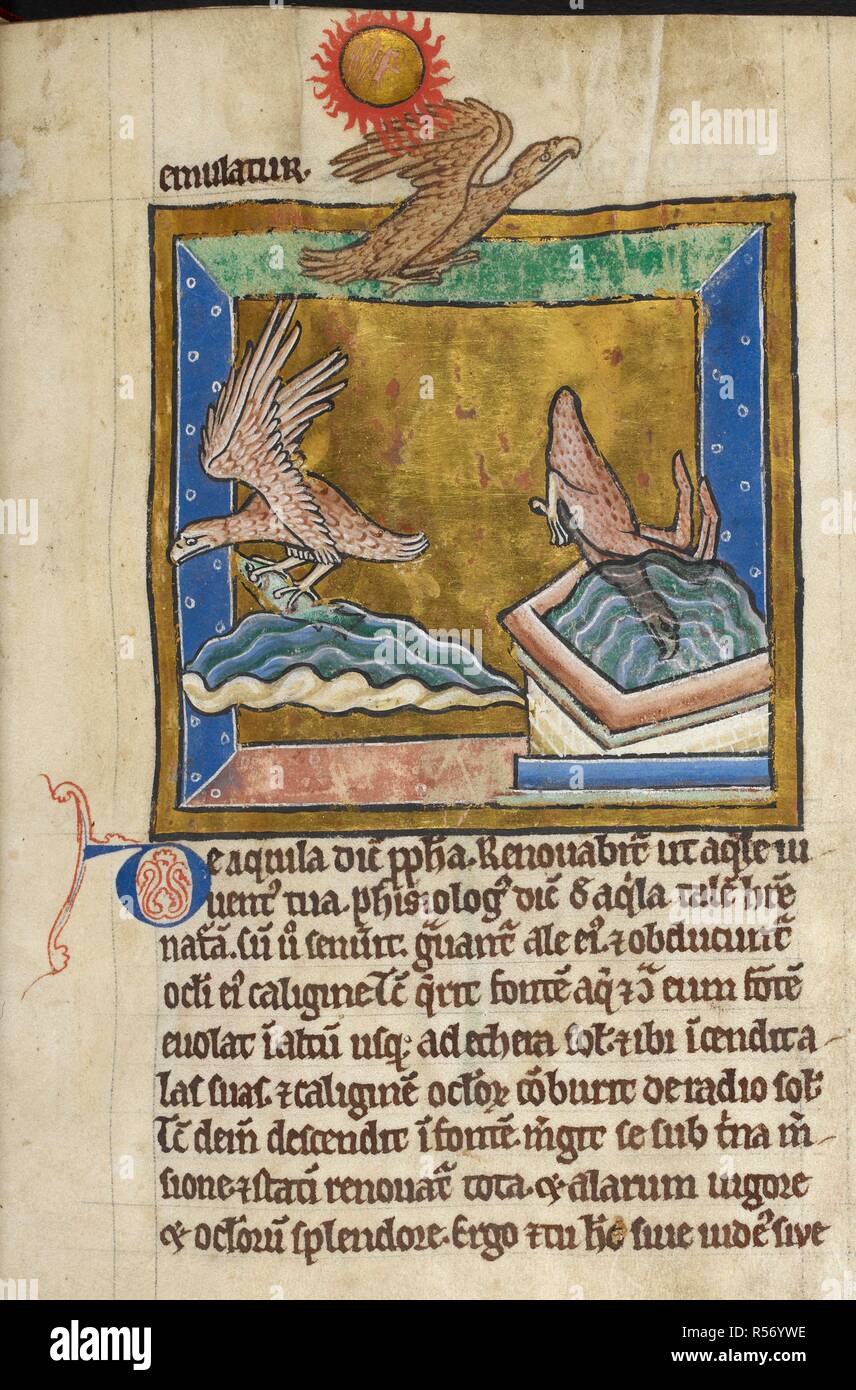 emulatur.
De aquila dic̄ pp̄ha. Renovabit̄ ut aq̄le iu
uent᾿ tua. phisiolog᾿ dic̄ d᾿ aq̇la. talē hr̄e
natā. Cū ū senuit. ḡvant̄ ale ei᾿. ⁊ obducunt̄
ocłi ei᾿ caligine. Tc̄ q̄rit fontē aq̄ ⁊ ↄ̄ eum fōtē
evolat ī altū usq; ad ethera soł. ⁊ ibi īcendit a
las suas. ⁊ caliginē ocłoꝝ cōburit de radio soł.
Tc̄ dem̄ descendit ī fontē. m̄git se sub t̄na m̄
sione. ⁊ statī renovat̄ tota. ex alarum uigore
ex ocłorū splendore. Ergo ⁊ tu hō sive iude᾿ sive
alamy
a
a
a
a
alamy
Image ID: R56YWE
www.alamy.com